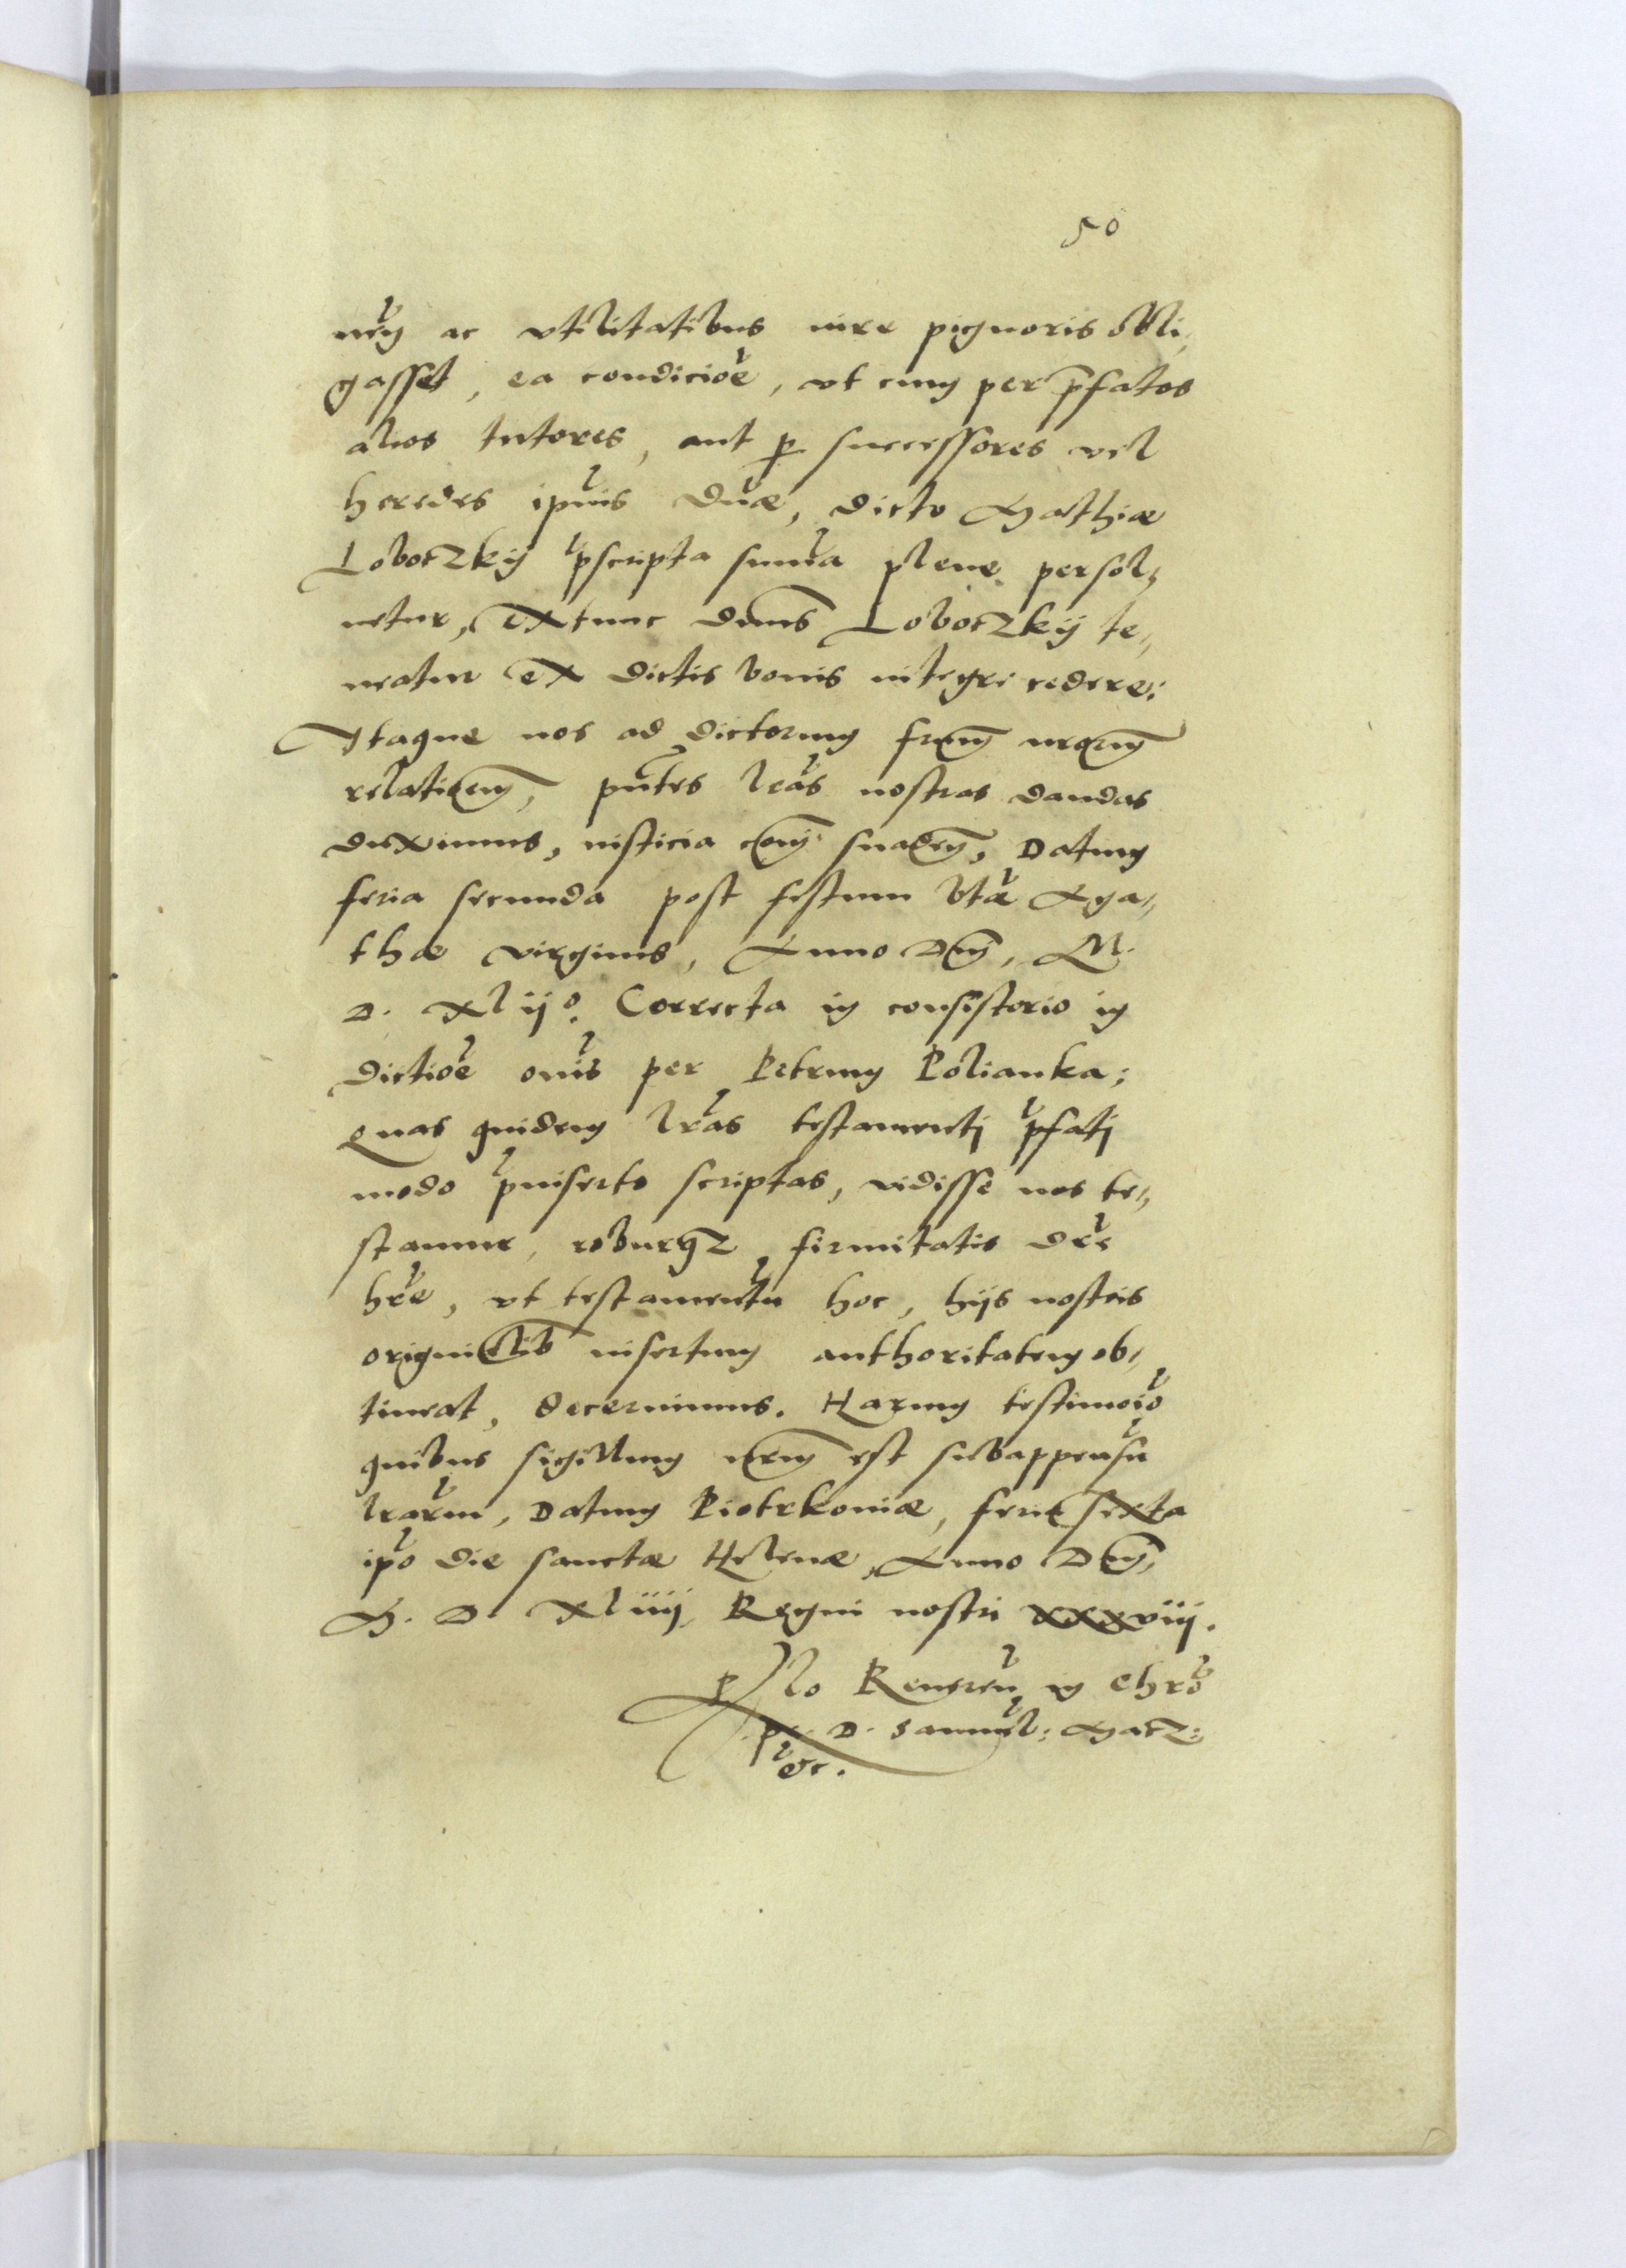 50
ac utilitatibus iure pignoris obli,
gasset, ea condicioe, ut cum per pfatos
alios tutores, aut p successores vel
heredes ipius Dnae, dicto Mathiae
Lobotzkij pscripta summa plene persol,
uetur, Extunc dnus Lobotzkij te,
neatur ex dictis bonis integre cedere:
Itaque nos ad dictorum nrorum
relationem, pntes lras nostras dandas
duximus, iusticia coi suaden, Datum
feria secunda post festum btae Aga,
thae virginis, Anno Dni, M.
D. xlijo. Correcta in consistorio in
dictioe onis per Petrum Polianka;
Quas quidem lras testamentj pfatj
modo pinserto scriptas, vidisse nos te,
stamur, roburqz firmitatis dre
hre, ut testamentu hoc, hijs nostris
originalib insertum authoritatem ob,
tineat, decernimus. Harum testimoio
quibus sigillum nrum est subappensu
lrarum, Datum Piotrkoniae, feria sexta
ipo die sanctae Helenae, Anno Dni,
M. D. xliiij, Regni nostri xxxviij.
Rlo Reueren in Chro
pr. D. Samuel: Matz:
etc.